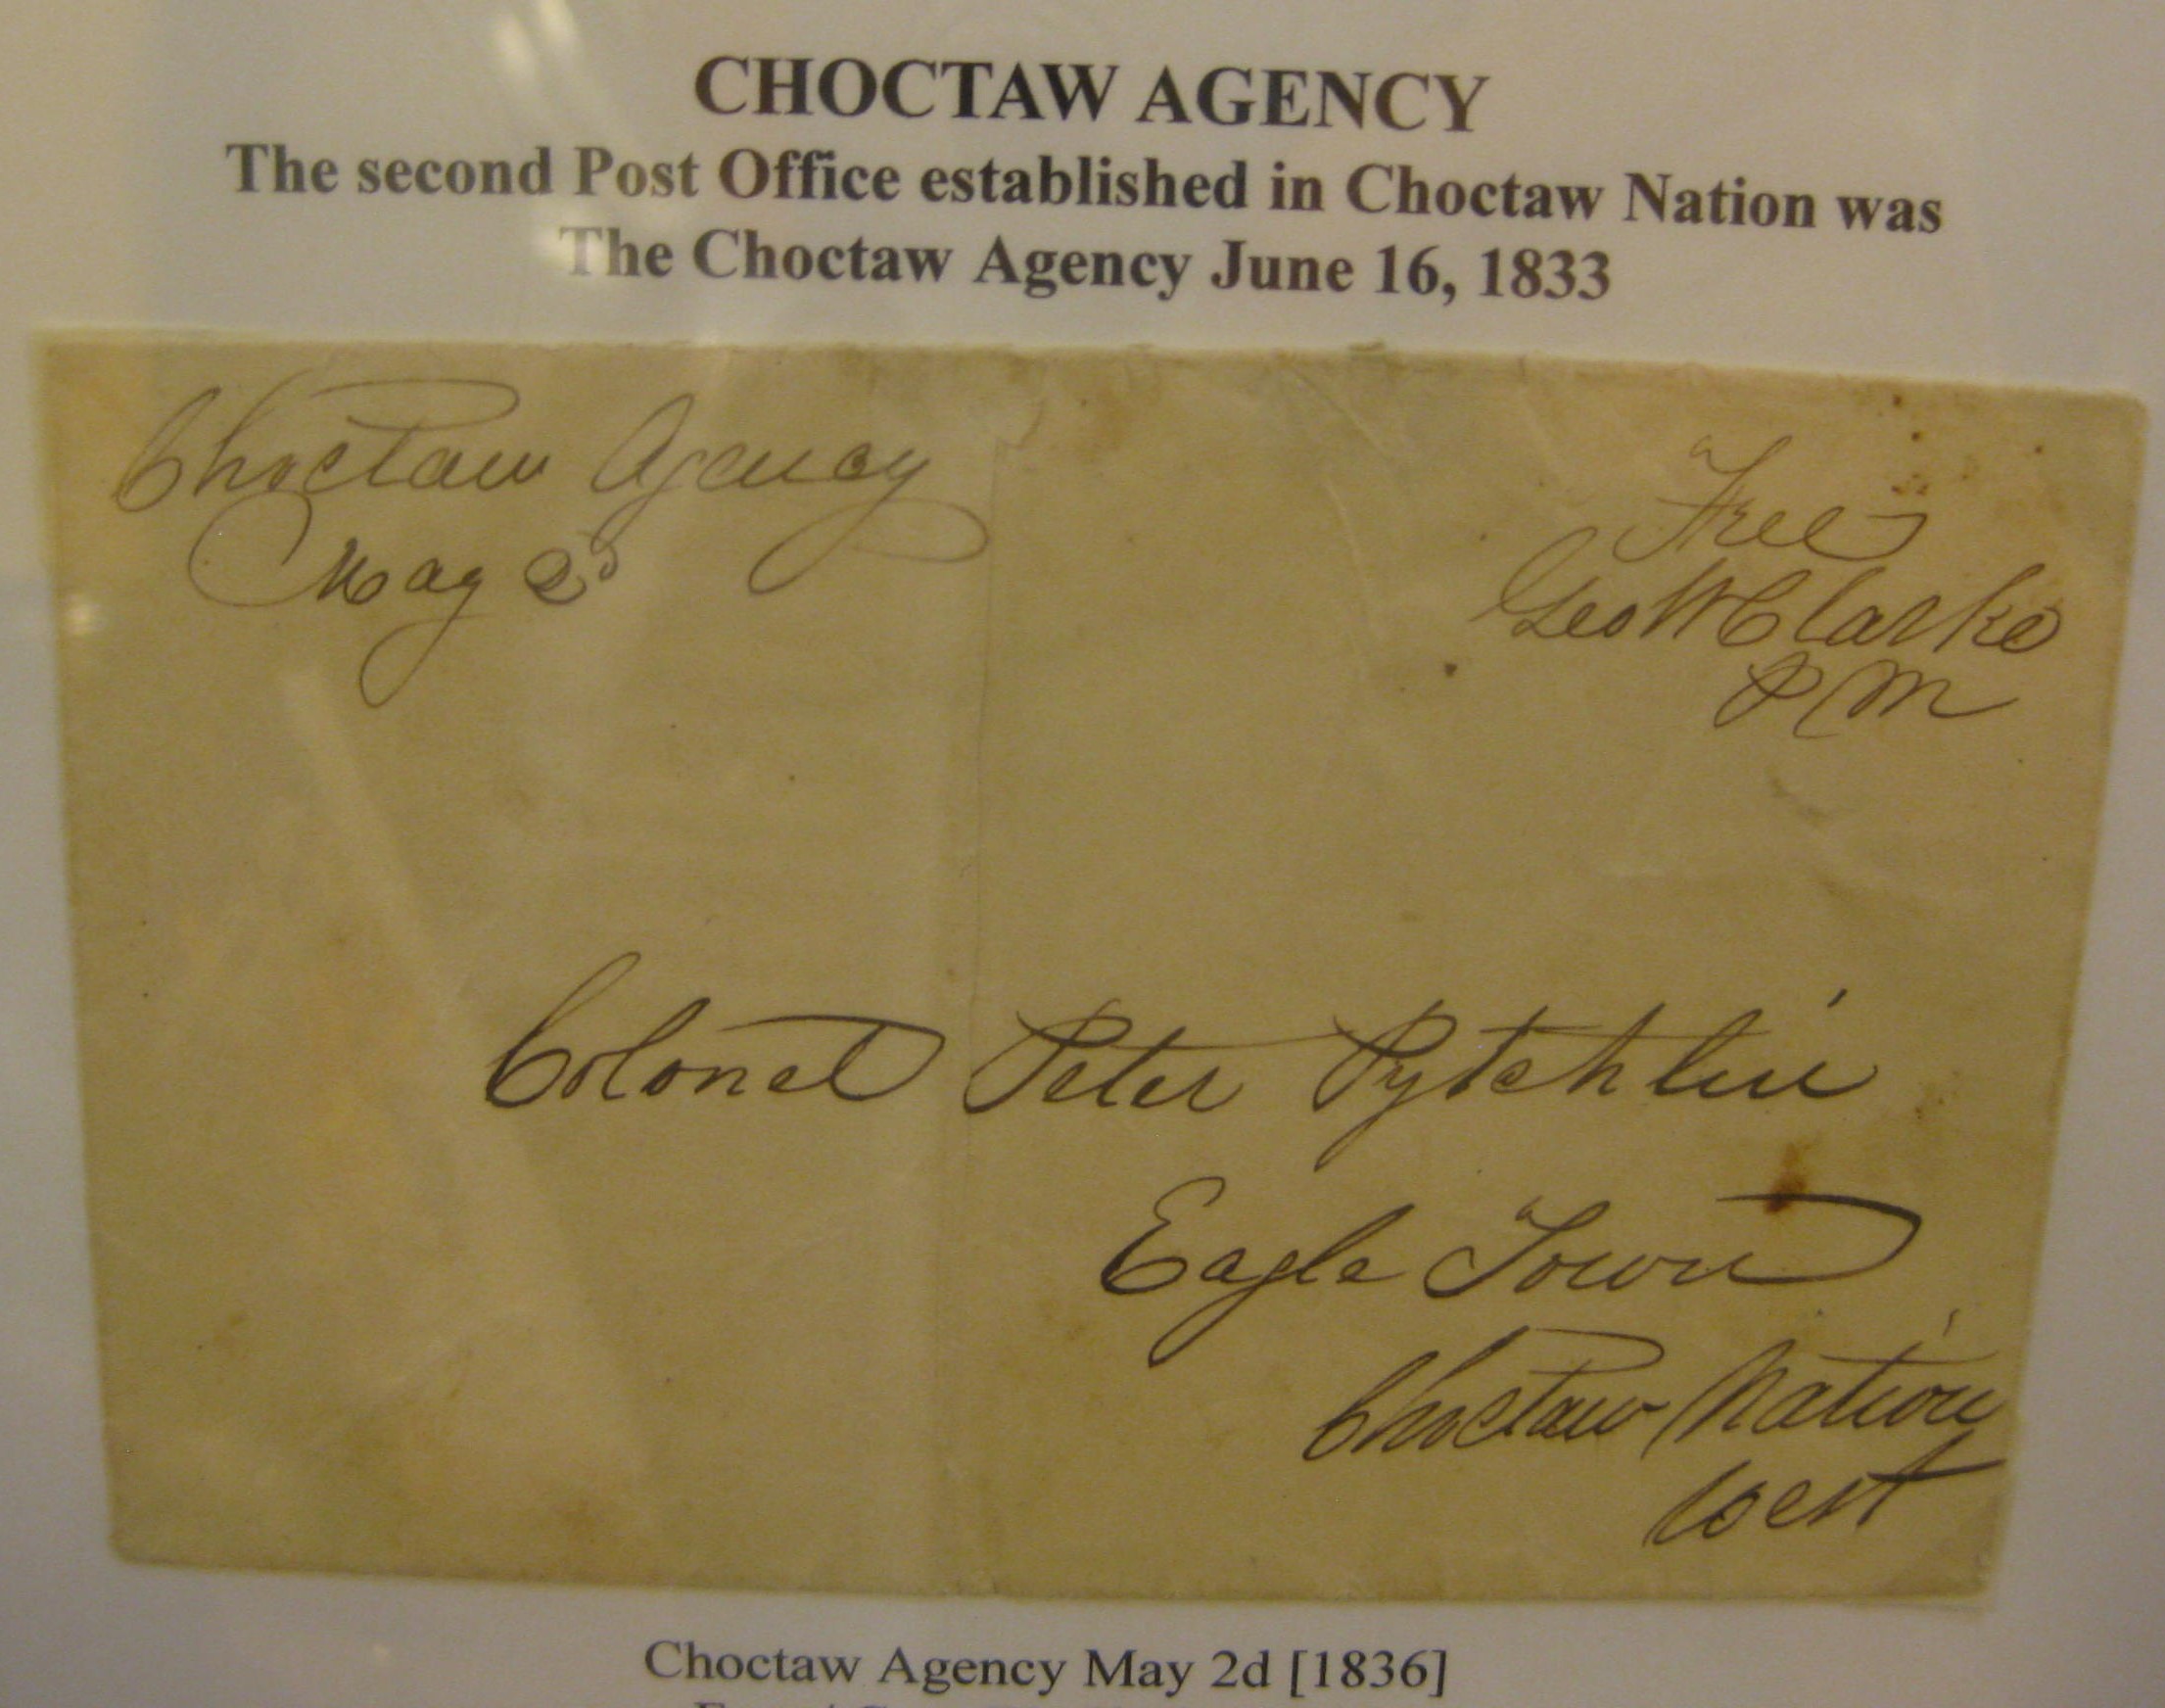 CHOCTAW AGENCY
The second Post Office established in Choctaw Nation was
The Choctaw Agency June 16, 1833
Choctaw Agency
May 2d
Free
Geo W Clarke
P M
Colonel Peter Pytchlin
Eagle Town
Choctaw Nation
West
Choctaw Agency May 2d [1836]